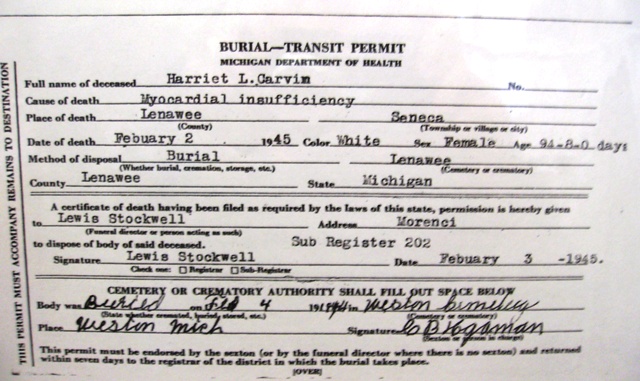 BURIAL—TRANSIT PERMIT
MICHIGAN DEPARTMENT OF HEALTH
THIS PERMIT MUST ACCOMPANY REMAINS TO DESTINATION
Full name of deceased Harriet L.Carvin No.
Cause of death Myocardial insufficiency
Place of death Lenawee Seneca
(County) (Township or village or city)
Date of death Febuary 2 1945 Color White Sex Female Age 94-8-0 days
Method of disposal Burial Lenawee
(Whether burial, cremation, storage, etc.) (Cemetery or crematory)
County Lenawee State Michigan
A certificate of death having been filed as required by the laws of this state, permission is hereby given
to Lewis Stockwell Address Morenci
(Funeral director or person acting as such)
to dispose of body of said deceased. Sub Register 202
Signature Lewis Stockwell Date Febuary 3 -1945.
Check one: ☐ Registrar ☐ Sub-Registrar
CEMETERY OR CREMATORY AUTHORITY SHALL FILL OUT SPACE BELOW
Body was Buried on Feb 4 in Weston Cemetery
(State whether cremated, buried, stored, etc.) (Cemetery or crematory)
Place Weston Mich Signature
(Sexton or person in charge)
This permit must be endorsed by the sexton (or by the funeral director where there is no sexton) and returned
within seven days to the registrar of the district in which the burial takes place.
[OVER]